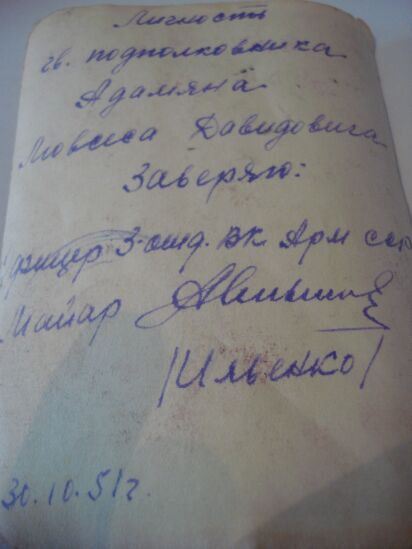 Личность
гв. подполковника
Адамяна
Мовсеса Давидовича
Заверяю:
Офицер 3-отд. вк. Арм сср
Майор
/Ильенко/
30.10.51г.